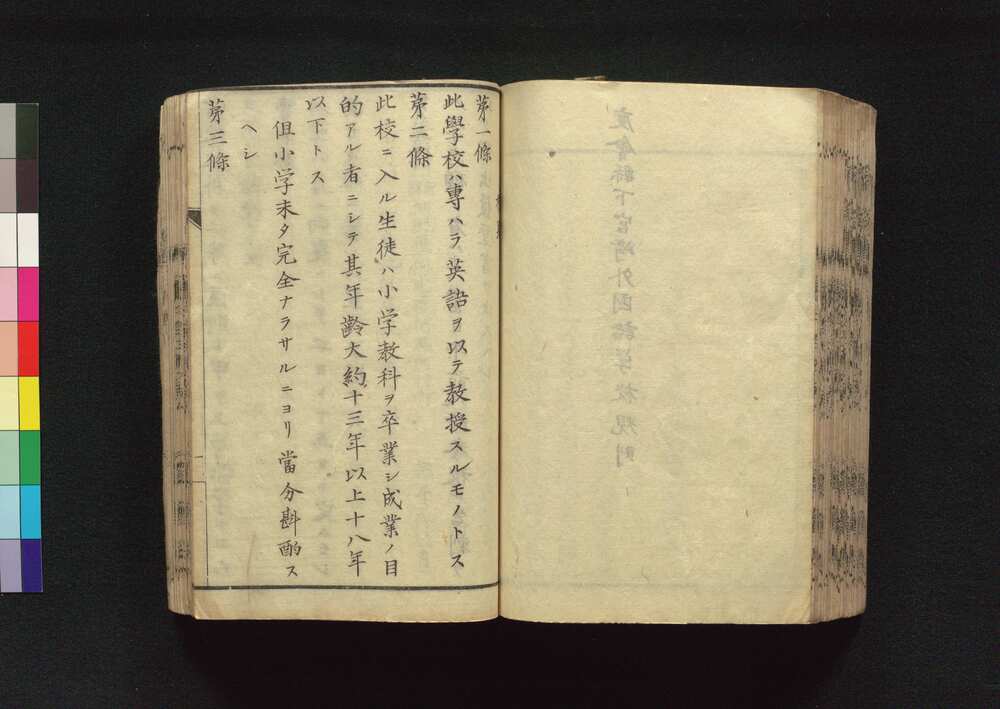 第一條
此學校ハ專ハラ英語ヲ以テ教授スルモノトス
第二條
此校ニ入ル生徒ハ小学教科ヲ卒業シ成業ノ目
的アル者ニシテ其年齢大約十三年以上十八年
以下トス
但小学未タ完全ナラサルニヨリ當分斟酌ス
ヘシ
第三條